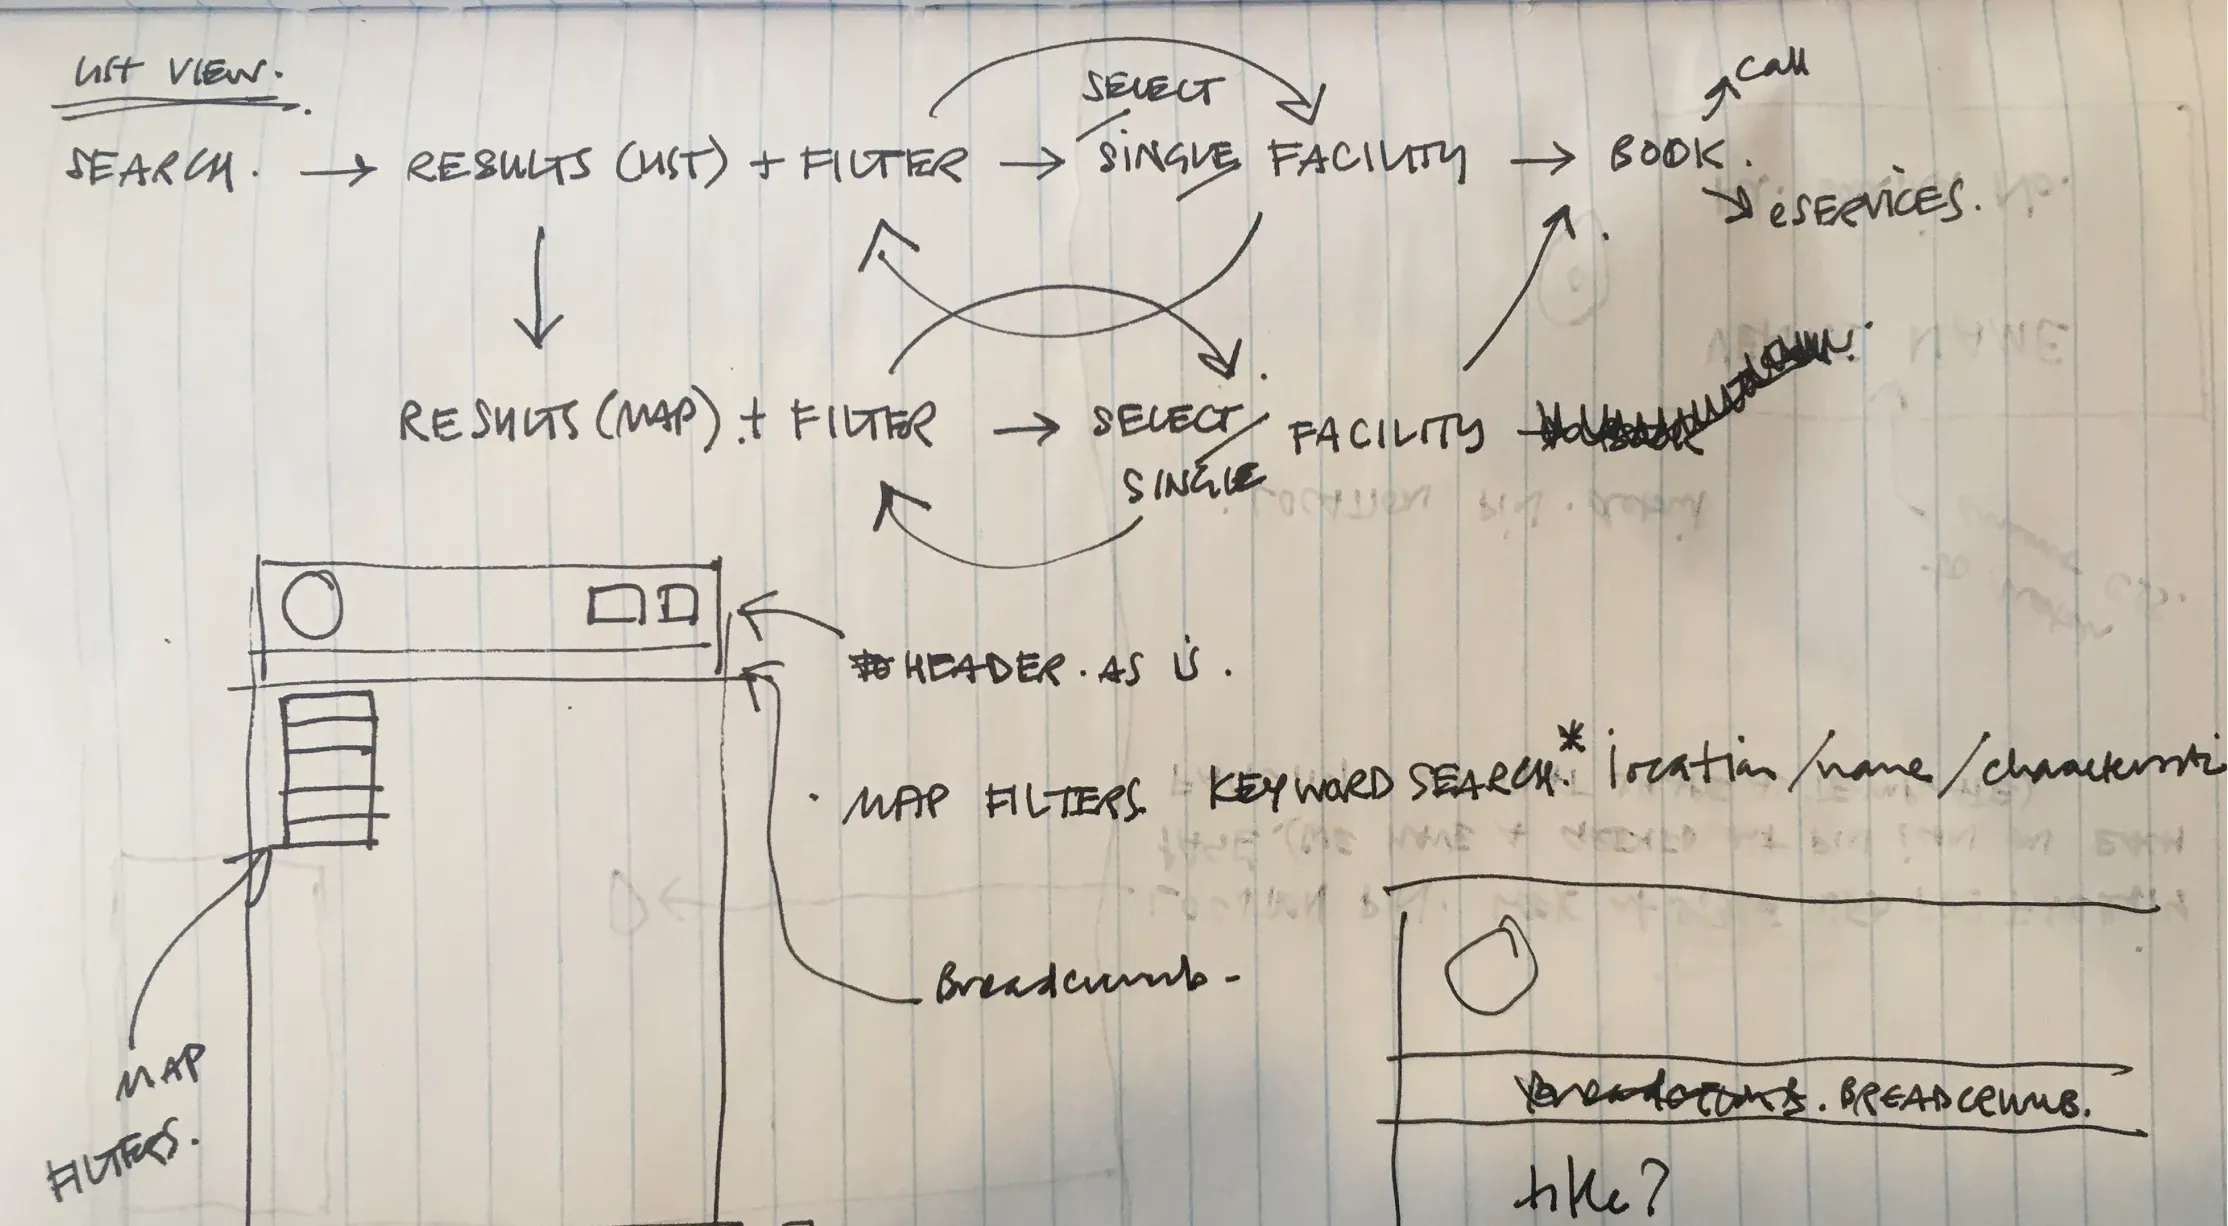 LIST VIEW.
call
SELECT
SEARCH. → RESULTS (LIST) + FILTER → SINGLE FACILITY → BOOK.
eSERVICES.
RESULTS (MAP). + FILTER → SELECT FACILITY
SINGLE
HEADER. AS IS.
MAP FILTERS. KEYWORD SEARCH.* location/name/characteristi
Breadcrumb -
MAP
FILTERS.
Breadcrumb. BREADCRUMB.
title?